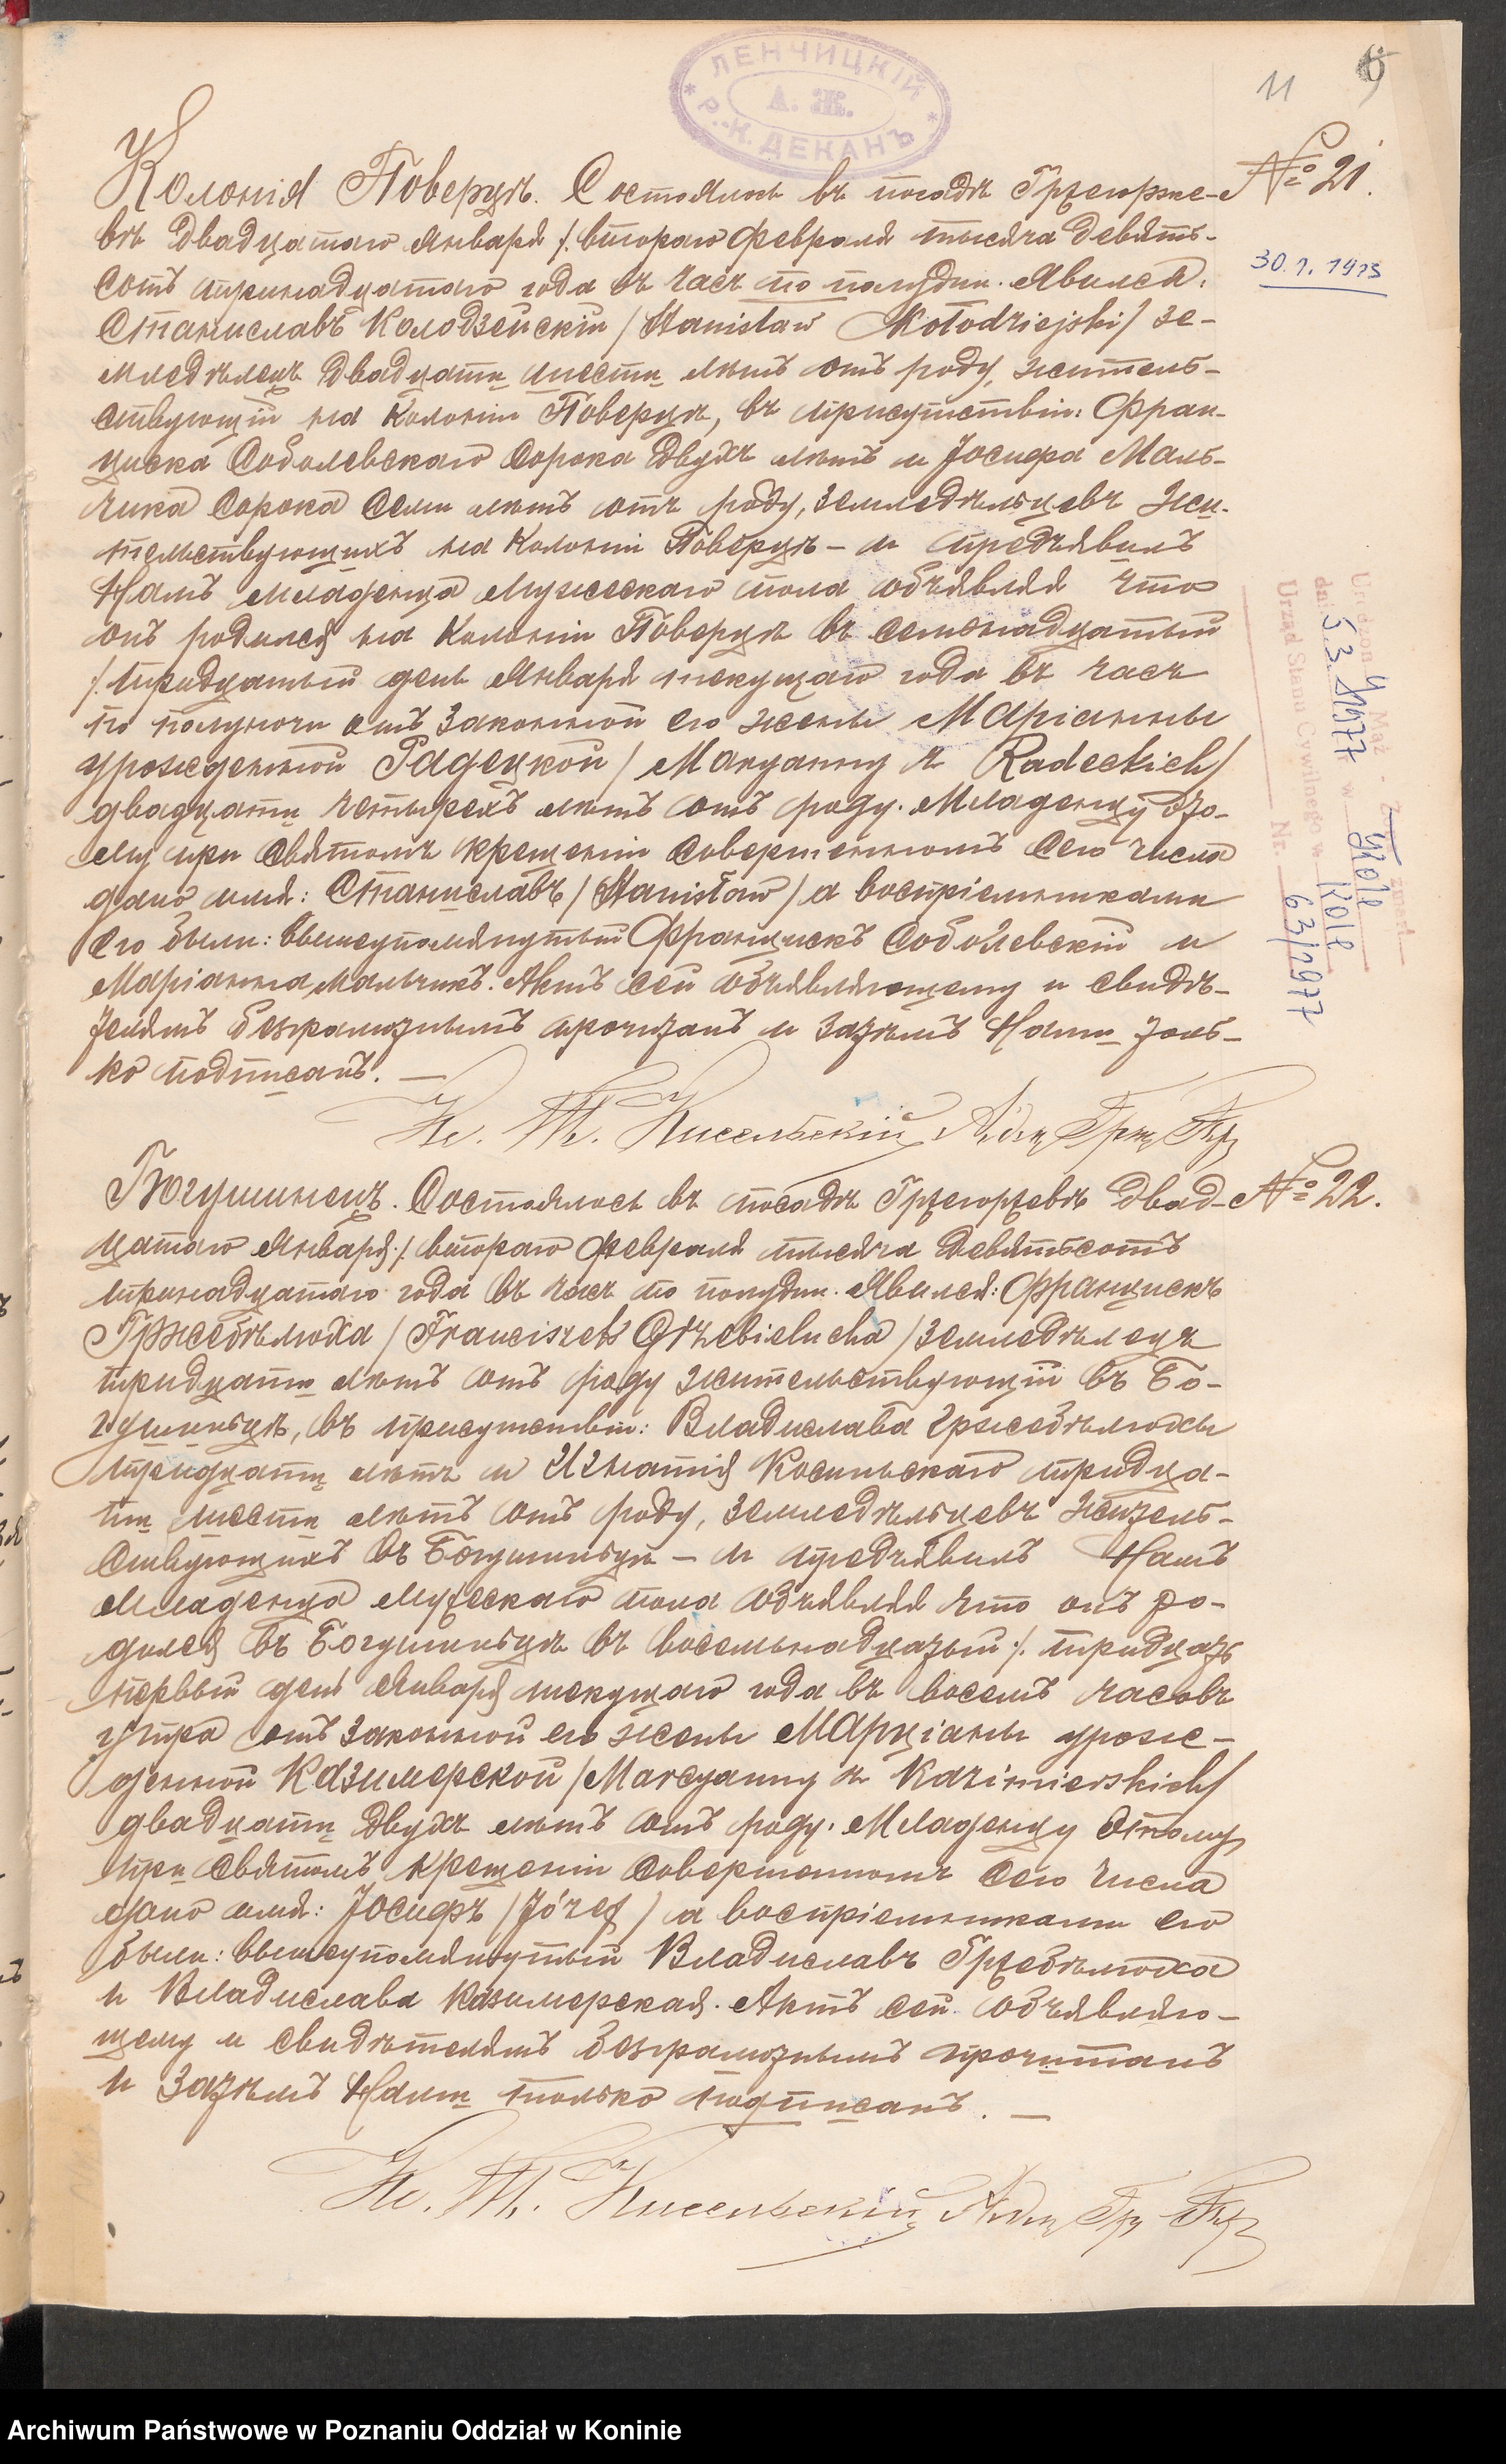 ЛЕНЧИЦКІЙ
А. Ж.
Р.-К. ДЕКАНЪ
11
6
№ 21.
Колонія Поверцѣ. Состоялось въ посадѣ Грегорже-
вѣ двадцатаго Января /:втораго Февраля тысяча девять-
сотъ тринадцатаго года въ часъ по полудни. Явился:
30.1.1913
Станиславъ Колодзейскій /Stanisław Kołodziejski/ зе-
мледѣлецъ двадцати шести лѣтъ отъ роду, житель-
ствующій на Колоніи Поверцѣ, въ присутствіи: Фран-
циска Соболевскаго сорока двухъ лѣтъ и Іосифа Маль-
чика сорока семи лѣтъ отъ роду, земледѣльцевъ жи-
тельствующихъ на Колоніи Поверцѣ – и предъявилъ
Намъ младенца мужескаго пола объявляя что
онъ родился на Колоніи Поверцѣ въ семнадцатый
/:тридцатый день Января текущаго года въ часъ
по полуночи отъ законной его жены Маріанны
урожденной Радецкой /Maryanny z Radeckich/
двадцати четырехъ лѣтъ отъ роду. Младенцу это-
му при святомъ крещеніи совершенномъ сего числа
дано имя: Станиславъ /Stanisław/ а воспріемниками
его были: вышеупомянутый Францискъ Соболевскій и
Маріанна Мальчикъ. Актъ сей объявляющему и свидѣ-
телямъ безграмотнымъ прочитанъ и затѣмъ Нами толь-
ко подписанъ. —
Кс. Т. Кисельскій
Urodzony
dn. 5.3.1977 w Kole
Urząd Stanu Cywilnego w Kole
Nr. 63/1977
№ 22.
Богушинецъ. Состоялось въ посадѣ Грегоржевѣ двад-
цатаго Января:/ втораго Февраля тысяча девятьсотъ
тринадцатаго года въ часъ по полудни. Явился: Францискъ
Гржебѣлюха /Franciszek Grzebielucha/ земледѣлецъ
тридцати лѣтъ отъ роду жительствующій въ Бо-
гушинцѣ, въ присутствіи: Владислава Гржебѣлюхи
тридцати лѣтъ и Игнатія Косиньскаго тридца-
ти шести лѣтъ отъ роду, земледѣльцевъ житель-
ствующихъ въ Богушинцѣ – и предъявилъ Намъ
младенца мужескаго пола объявляя что онъ ро-
дился въ Богушинцѣ въ восемнадцатый:/. тридцать
первый день Января текущаго года въ восемь часовъ
утра отъ законной его жены Марціаны урож-
денной Казимерской /Marcyanny z Kazimierskich/
двадцати двухъ лѣтъ отъ роду. Младенцу этому
при святомъ крещеніи совершенномъ сего числа
дано имя: Іосифъ /Józef/ а воспріемниками его
были: вышеупомянутый Владиславъ Гржебѣлюха
и Владислава Казимерская. Актъ сей объявляю-
щему и свидѣтелямъ безграмотнымъ прочитанъ
и затѣмъ Нами только подписанъ. —
Кс. Т. Кисельскій
Archiwum Państwowe w Poznaniu Oddział w Koninie